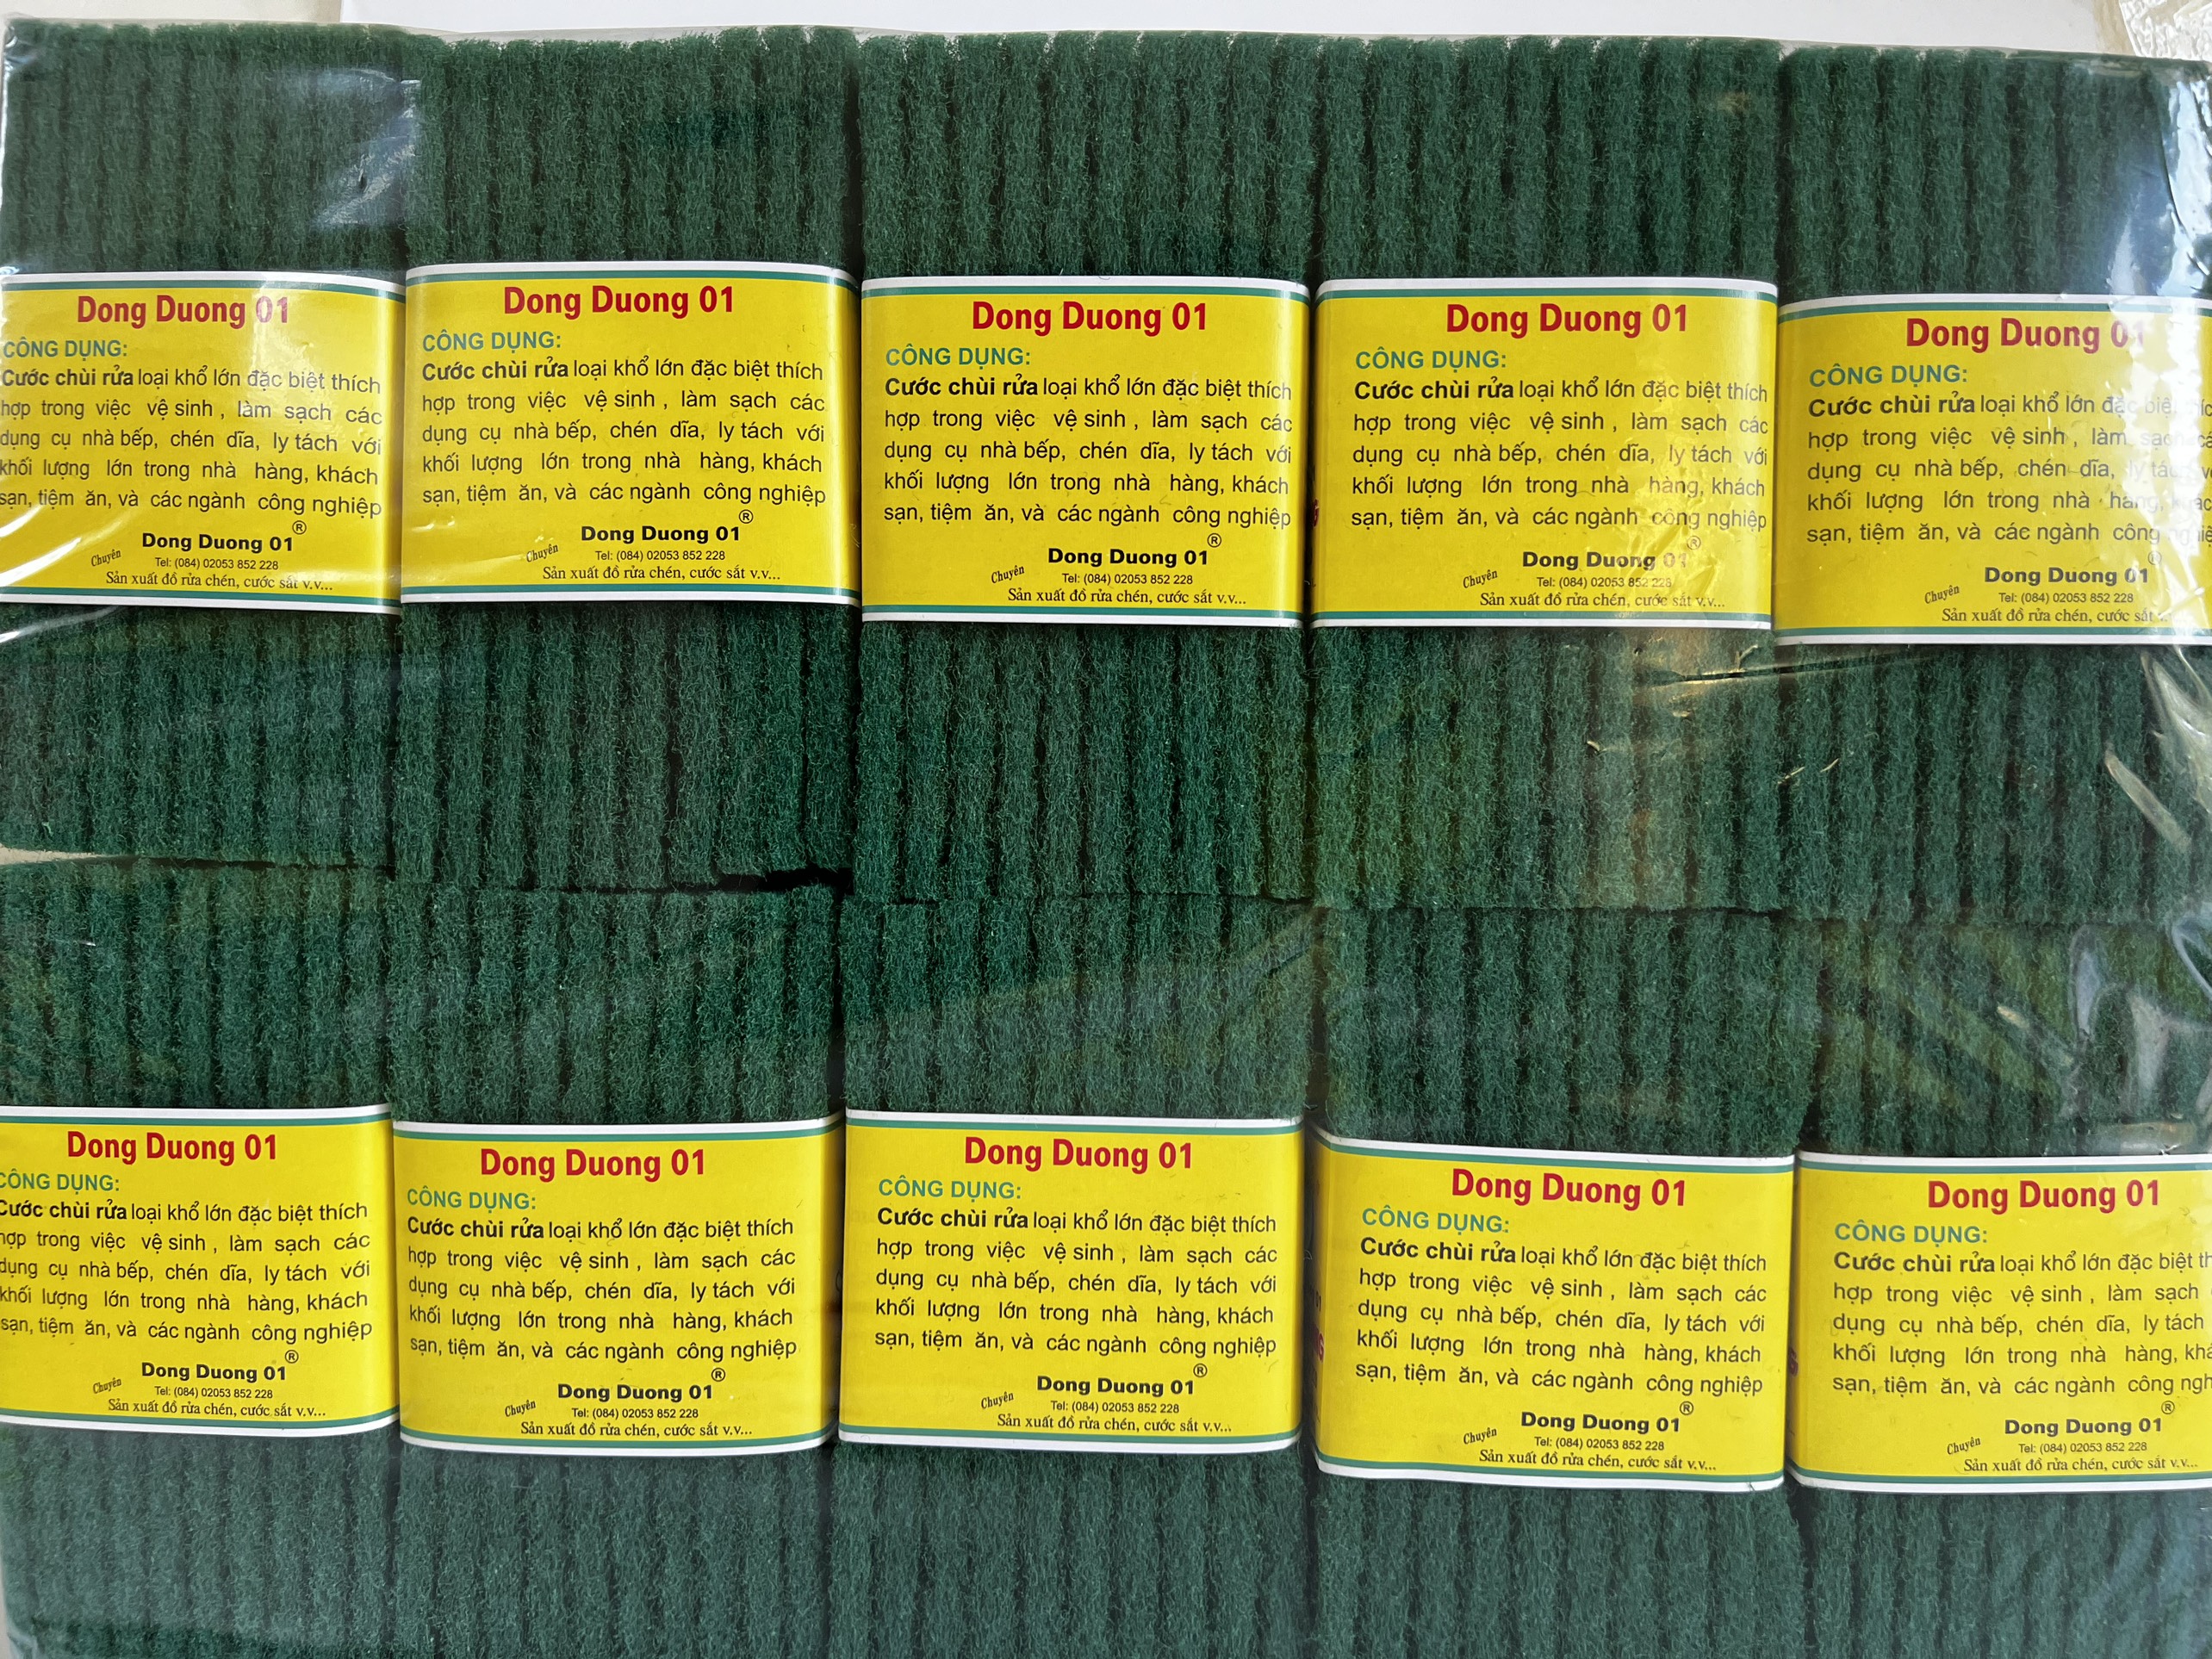 Dong Duong 01
CÔNG DỤNG:
Cước chùi rửa loại khổ lớn đặc biệt thích
hợp trong việc vệ sinh , làm sạch các
dụng cụ nhà bếp, chén dĩa, ly tách với
khối lượng lớn trong nhà hàng, khách
sạn, tiệm ăn, và các ngành công nghiệp
Dong Duong 01®
Chuyên
Tel: (084) 02053 852 228
Sản xuất đồ rửa chén, cước sắt v.v...
Dong Duong 01
CÔNG DỤNG:
Cước chùi rửa loại khổ lớn đặc biệt thích
hợp trong việc vệ sinh , làm sạch các
dụng cụ nhà bếp, chén dĩa, ly tách với
khối lượng lớn trong nhà hàng, khách
sạn, tiệm ăn, và các ngành công nghiệp
Dong Duong 01®
Chuyên
Tel: (084) 02053 852 228
Sản xuất đồ rửa chén, cước sắt v.v...
Dong Duong 01
CÔNG DỤNG:
Cước chùi rửa loại khổ lớn đặc biệt thích
hợp trong việc vệ sinh , làm sạch các
dụng cụ nhà bếp, chén dĩa, ly tách với
khối lượng lớn trong nhà hàng, khách
sạn, tiệm ăn, và các ngành công nghiệp
Dong Duong 01®
Chuyên
Tel: (084) 02053 852 228
Sản xuất đồ rửa chén, cước sắt v.v...
Dong Duong 01
CÔNG DỤNG:
Cước chùi rửa loại khổ lớn đặc biệt thích
hợp trong việc vệ sinh , làm sạch các
dụng cụ nhà bếp, chén dĩa, ly tách với
khối lượng lớn trong nhà hàng, khách
sạn, tiệm ăn, và các ngành công nghiệp
Dong Duong 01®
Chuyên
Tel: (084) 02053 852 228
Sản xuất đồ rửa chén, cước sắt v.v...
Dong Duong 01
CÔNG DỤNG:
Cước chùi rửa loại khổ lớn đặc biệt
hợp trong việc vệ sinh , làm sạch
dụng cụ nhà bếp, chén dĩa, ly tách
khối lượng lớn trong nhà hàng,
sạn, tiệm ăn, và các ngành công
Dong Duong 01®
Chuyên
Tel: (084) 02053 852 228
Sản xuất đồ rửa chén, cước sắt
Dong Duong 01
CÔNG DỤNG:
Cước chùi rửa loại khổ lớn đặc biệt thích
hợp trong việc vệ sinh , làm sạch các
dụng cụ nhà bếp, chén dĩa, ly tách với
khối lượng lớn trong nhà hàng, khách
sạn, tiệm ăn, và các ngành công nghiệp
Dong Duong 01®
Chuyên
Tel: (084) 02053 852 228
Sản xuất đồ rửa chén, cước sắt v.v...
Dong Duong 01
CÔNG DỤNG:
Cước chùi rửa loại khổ lớn đặc biệt thích
hợp trong việc vệ sinh , làm sạch các
dụng cụ nhà bếp, chén dĩa, ly tách với
khối lượng lớn trong nhà hàng, khách
sạn, tiệm ăn, và các ngành công nghiệp
Dong Duong 01®
Chuyên
Tel: (084) 02053 852 228
Sản xuất đồ rửa chén, cước sắt v.v...
Dong Duong 01
CÔNG DỤNG:
Cước chùi rửa loại khổ lớn đặc biệt thích
hợp trong việc vệ sinh , làm sạch các
dụng cụ nhà bếp, chén dĩa, ly tách với
khối lượng lớn trong nhà hàng, khách
sạn, tiệm ăn, và các ngành công nghiệp
Dong Duong 01®
Chuyên
Tel: (084) 02053 852 228
Sản xuất đồ rửa chén, cước sắt v.v...
Dong Duong 01
CÔNG DỤNG:
Cước chùi rửa loại khổ lớn đặc biệt thích
hợp trong việc vệ sinh , làm sạch các
dụng cụ nhà bếp, chén dĩa, ly tách với
khối lượng lớn trong nhà hàng, khách
sạn, tiệm ăn, và các ngành công nghiệp
Dong Duong 01®
Chuyên
Tel: (084) 02053 852 228
Sản xuất đồ rửa chén, cước sắt v.v...
Dong Duong 01
CÔNG DỤNG:
Cước chùi rửa loại khổ lớn đặc biệt
hợp trong việc vệ sinh , làm sạch
dụng cụ nhà bếp, chén dĩa, ly tách
khối lượng lớn trong nhà hàng,
sạn, tiệm ăn, và các ngành công
Dong Duong 01®
Chuyên
Tel: (084) 02053 852 228
Sản xuất đồ rửa chén, cước sắt v.v...